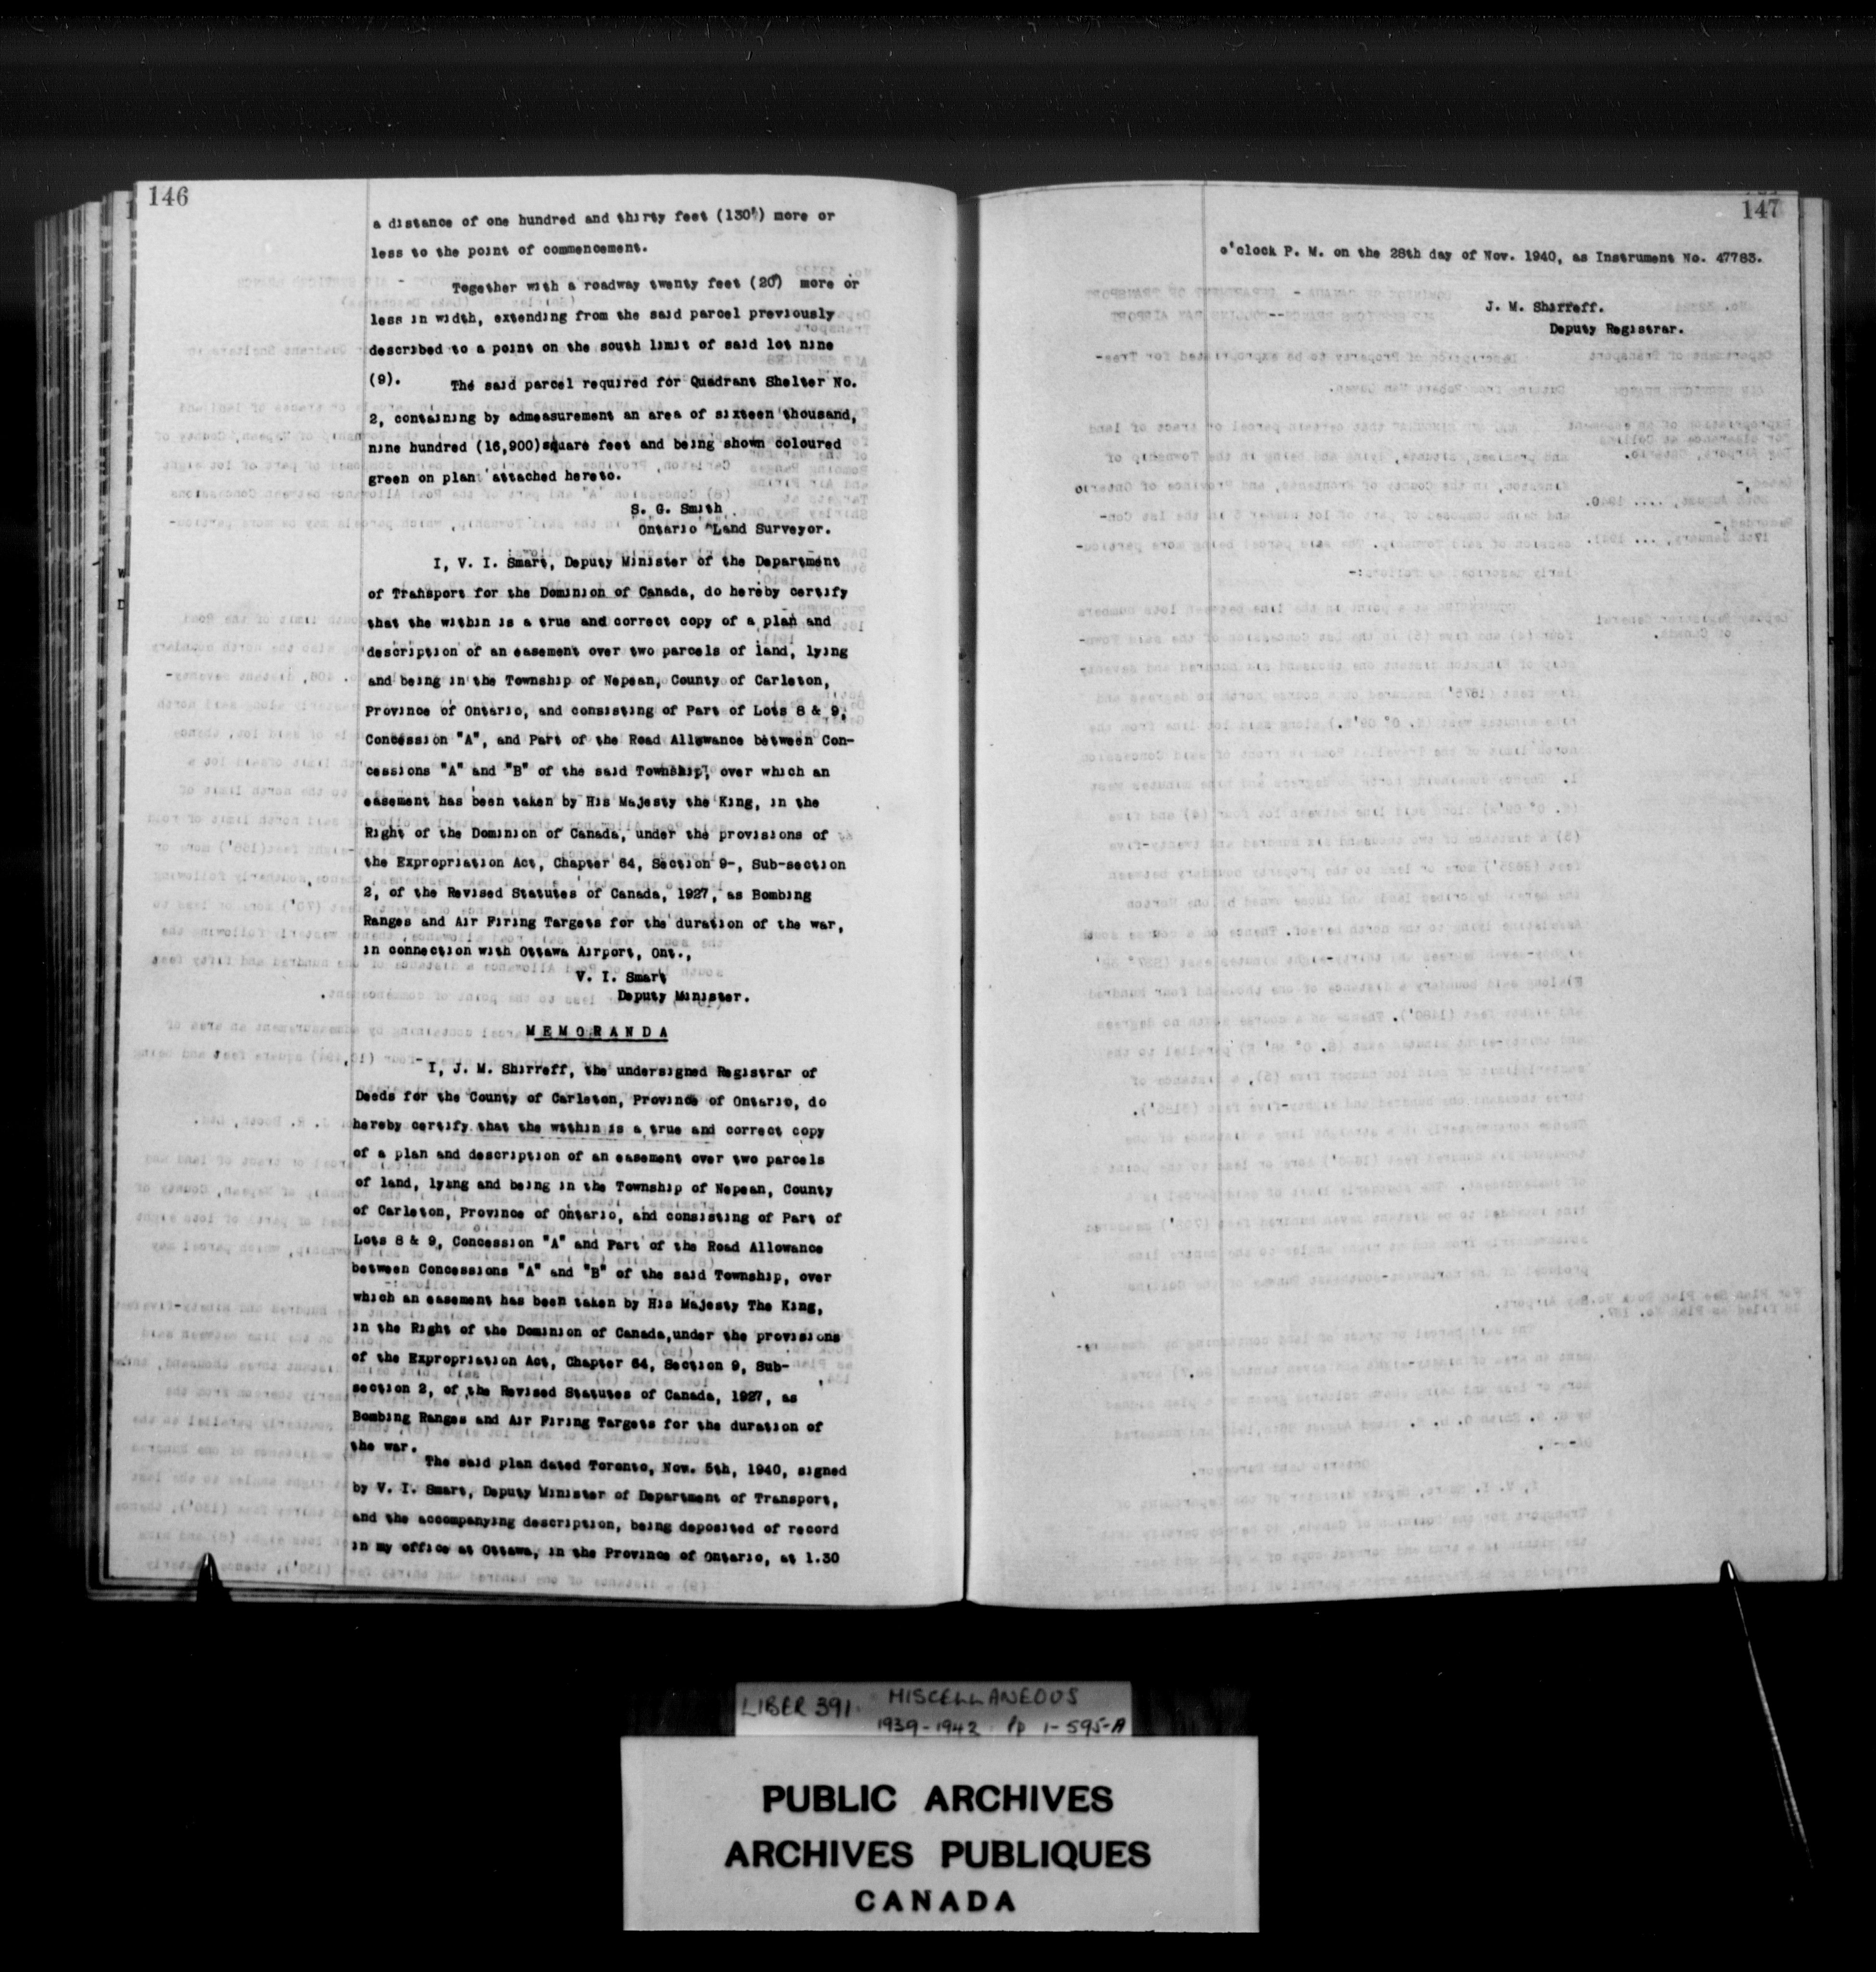 146
a distance of one hundred and thirty feet (130') more or
less to the point of commencement.
Together with a roadway twenty feet (20') more or
less in width, extending from the said parcel previously
described to a point on the south limit of said lot nine
(9).
The said parcel required for Quadrant Shelter No.
2, containing by admeasurement an area of sixteen thousand,
nine hundred (16,900)square feet and being shown coloured
green on plan attached hereto.
S. G. Smith
Ontario Land Surveyor.
I, V. I. Smart, Deputy Minister of the Department
of Transport for the Dominion of Canada, do hereby certify
that the within is a true and correct copy of a plan and
description of an easement over two parcels of land, lying
and being in the Township of Nepean, County of Carleton,
Province of Ontario, and consisting of Part of Lots 8 & 9,
Concession "A", and Part of the Road Allowance between Con-
cessions "A" and "B" of the said Township, over which an
easement has been taken by His Majesty the King, in the
Right of the Dominion of Canada, under the provisions of
the Expropriation Act, Chapter 64, Section 9-, Sub-section
2, of the Revised Statutes of Canada, 1927, as Bombing
Ranges and Air Firing Targets for the duration of the war,
in connection with Ottawa Airport, Ont.,
V. I. Smart
Deputy Minister.
MEMORANDA
I, J. M. Shirreff, the undersigned Registrar of
Deeds for the County of Carleton, Province of Ontario, do
hereby certify that the within is a true and correct copy
of a plan and description of an easement over two parcels
of land, lying and being in the Township of Nepean, County
of Carleton, Province of Ontario, and consisting of Part of
Lots 8 & 9, Concession "A" and Part of the Road Allowance
between Concessions "A" and "B" of the said Township, over
which an easement has been taken by His Majesty The King,
in the Right of the Dominion of Canada,under the provisions
of the Expropriation Act, Chapter 64, Section 9, Sub-
section 2, of the Revised Statutes of Canada, 1927, as
Bombing Ranges and Air Firing Targets for the duration of
the war.
The said plan dated Toronto, Nov. 5th, 1940, signed
by V. I. Smart, Deputy Minister of Department of Transport,
and the accompanying description, being deposited of record
in my office at Ottawa, in the Province of Ontario, at 1.30
147
o'clock P. M. on the 28th day of Nov. 1940, as Instrument No. 47783.
J. M. Shirreff.
Deputy Registrar.
LIBER 391. MISCELLANEOUS
1939-1942 Pp 1-595-A
PUBLIC ARCHIVES
ARCHIVES PUBLIQUES
CANADA